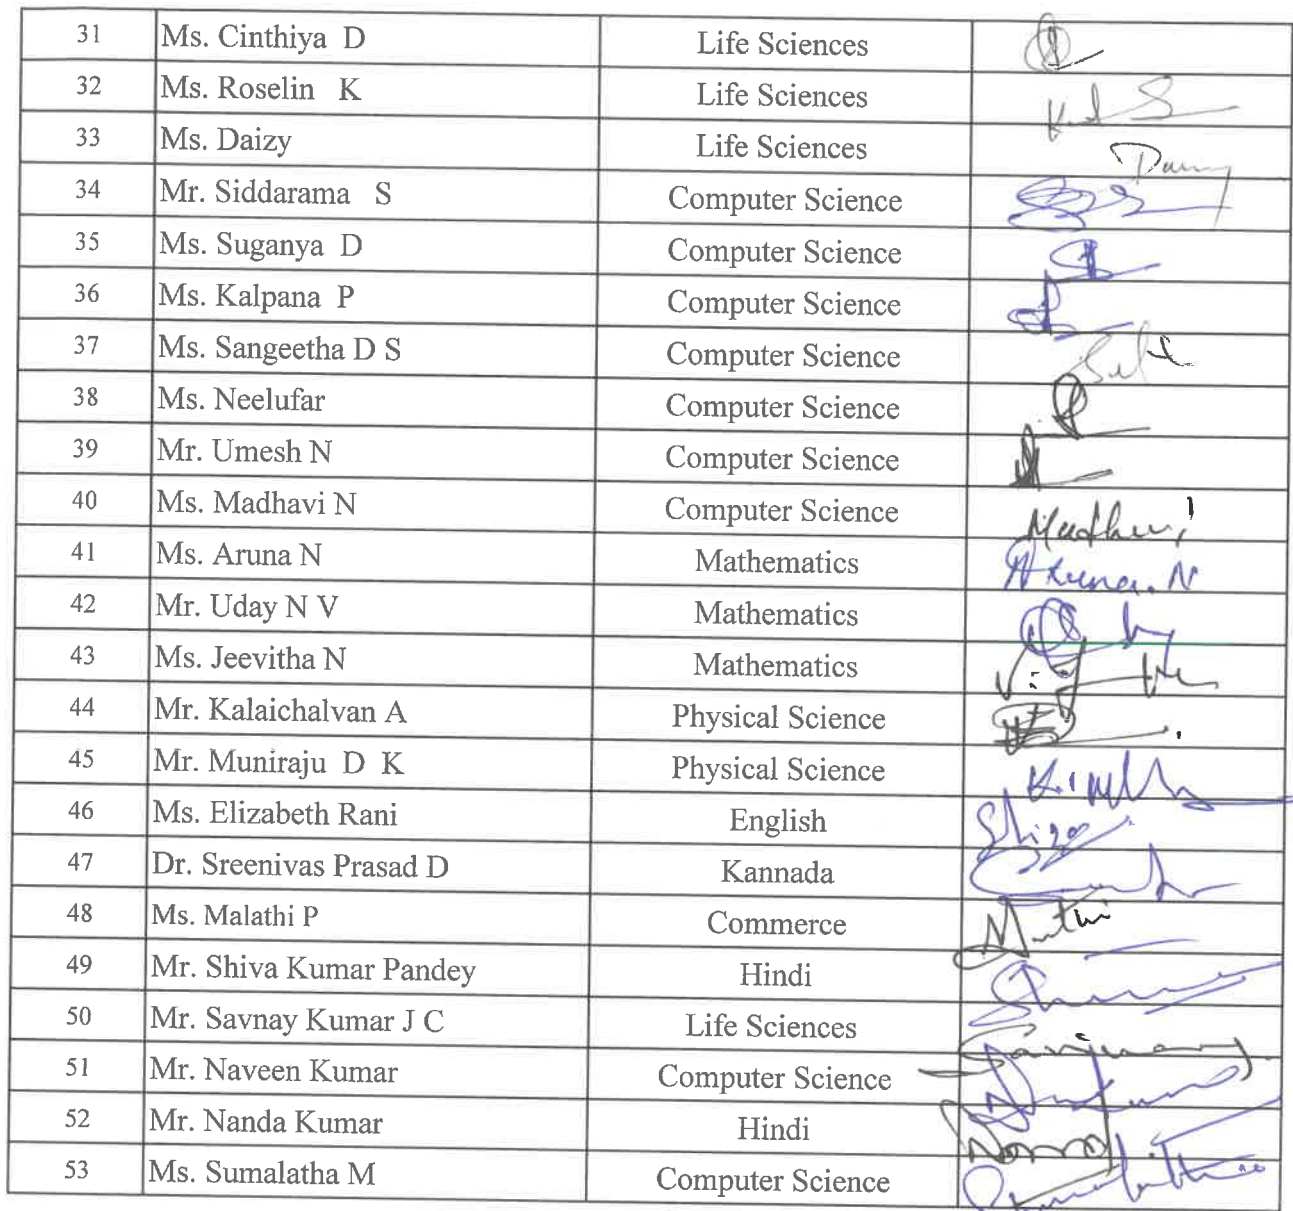 31 Ms. Cinthiya D Life Sciences
32 Ms. Roselin K Life Sciences
33 Ms. Daizy Life Sciences
34 Mr. Siddarama S Computer Science
35 Ms. Suganya D Computer Science
36 Ms. Kalpana P Computer Science
37 Ms. Sangeetha D S Computer Science
38 Ms. Neelufar Computer Science
39 Mr. Umesh N Computer Science
40 Ms. Madhavi N Computer Science
41 Ms. Aruna N Mathematics Aruna. N
42 Mr. Uday N V Mathematics
43 Ms. Jeevitha N Mathematics
44 Mr. Kalaichalvan A Physical Science
45 Mr. Muniraju D K Physical Science
46 Ms. Elizabeth Rani English
47 Dr. Sreenivas Prasad D Kannada
48 Ms. Malathi P Commerce
49 Mr. Shiva Kumar Pandey Hindi
50 Mr. Savnay Kumar J C Life Sciences
51 Mr. Naveen Kumar Computer Science
52 Mr. Nanda Kumar Hindi
53 Ms. Sumalatha M Computer Science